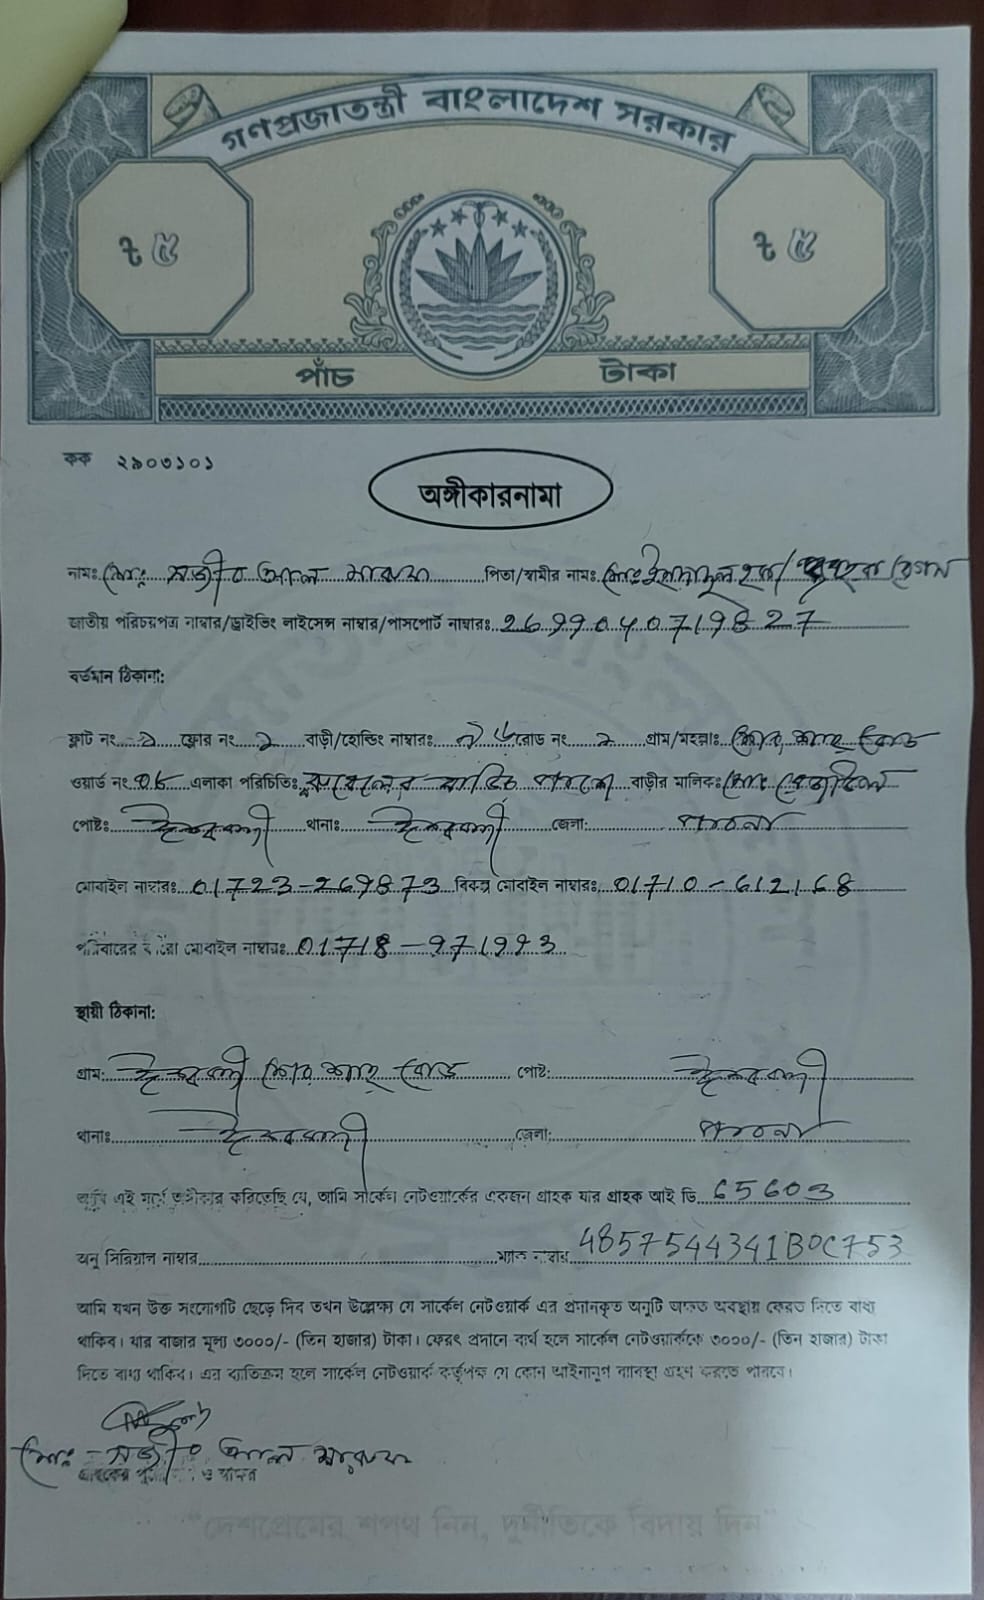 গণপ্রজাতন্ত্রী বাংলাদেশ সরকার
৳ ৫ ৳ ৫
পাঁচ টাকা
কক ২৯০৩১০১
অঙ্গীকারনামা
নামঃ মোঃ সজীব আল মারুফ পিতা/স্বামীর নামঃ মোঃ হক/ বেগম
জাতীয় পরিচয়পত্র নাম্বার/ড্রাইভিং লাইসেন্স নাম্বার/পাসপোর্ট নাম্বারঃ
বর্তমান ঠিকানা:
ফ্লাট নং ফ্লোর নং বাড়ী/হোল্ডিং নাম্বারঃ রোড নং গ্রাম/মহল্লাঃ শের শাহ্ রোড
ওয়ার্ড নং এলাকা পরিচিতিঃ বাড়ির পাশে বাড়ীর মালিকঃ মোঃ
পোষ্টঃ ঈশ্বরদী থানাঃ ঈশ্বরদী জেলা: পাবনা
মোবাইল নাম্বারঃ 01723-269873 বিকল্প মোবাইল নাম্বারঃ 01710-612168
পরিবারের কারো মোবাইল নাম্বারঃ
স্থায়ী ঠিকানা:
গ্রাম: ঈশ্বরদী শের শাহ্ রোড পোষ্ট: ঈশ্বরদী
থানাঃ ঈশ্বরদী জেলা: পাবনা
আমি এই মর্মে অঙ্গীকার করিতেছি যে, আমি সার্কেল নেটওয়ার্কের একজন গ্রাহক যার গ্রাহক আই ডি 65603
অনু সিরিয়াল নাম্বার ম্যাক নাম্বার 4857544341B0C753
আমি যখন উক্ত সংযোগটি ছেড়ে দিব তখন উল্লেক্ষ্য যে সার্কেল নেটওয়ার্ক এর প্রদানকৃত অনুটি অক্ষত অবস্থায় ফেরত দিতে বাধ্য
থাকিব। যার বাজার মূল্য ৩০০০/- (তিন হাজার) টাকা। ফেরৎ প্রদানে ব্যর্থ হলে সার্কেল নেটওয়ার্ককে ৩০০০/- (তিন হাজার) টাকা
দিতে বাধ্য থাকিব। এর ব্যতিক্রম হলে সার্কেল নেটওয়ার্ক কর্তৃপক্ষ যে কোন আইনানুগ ব্যবস্থা গ্রহণ করতে পারবে।
মোঃ সজীব আল মারুফ
গ্রাহকের ও স্বাক্ষর
"দেশপ্রেমের শপথ নিন, দুর্নীতিকে বিদায় দিন"